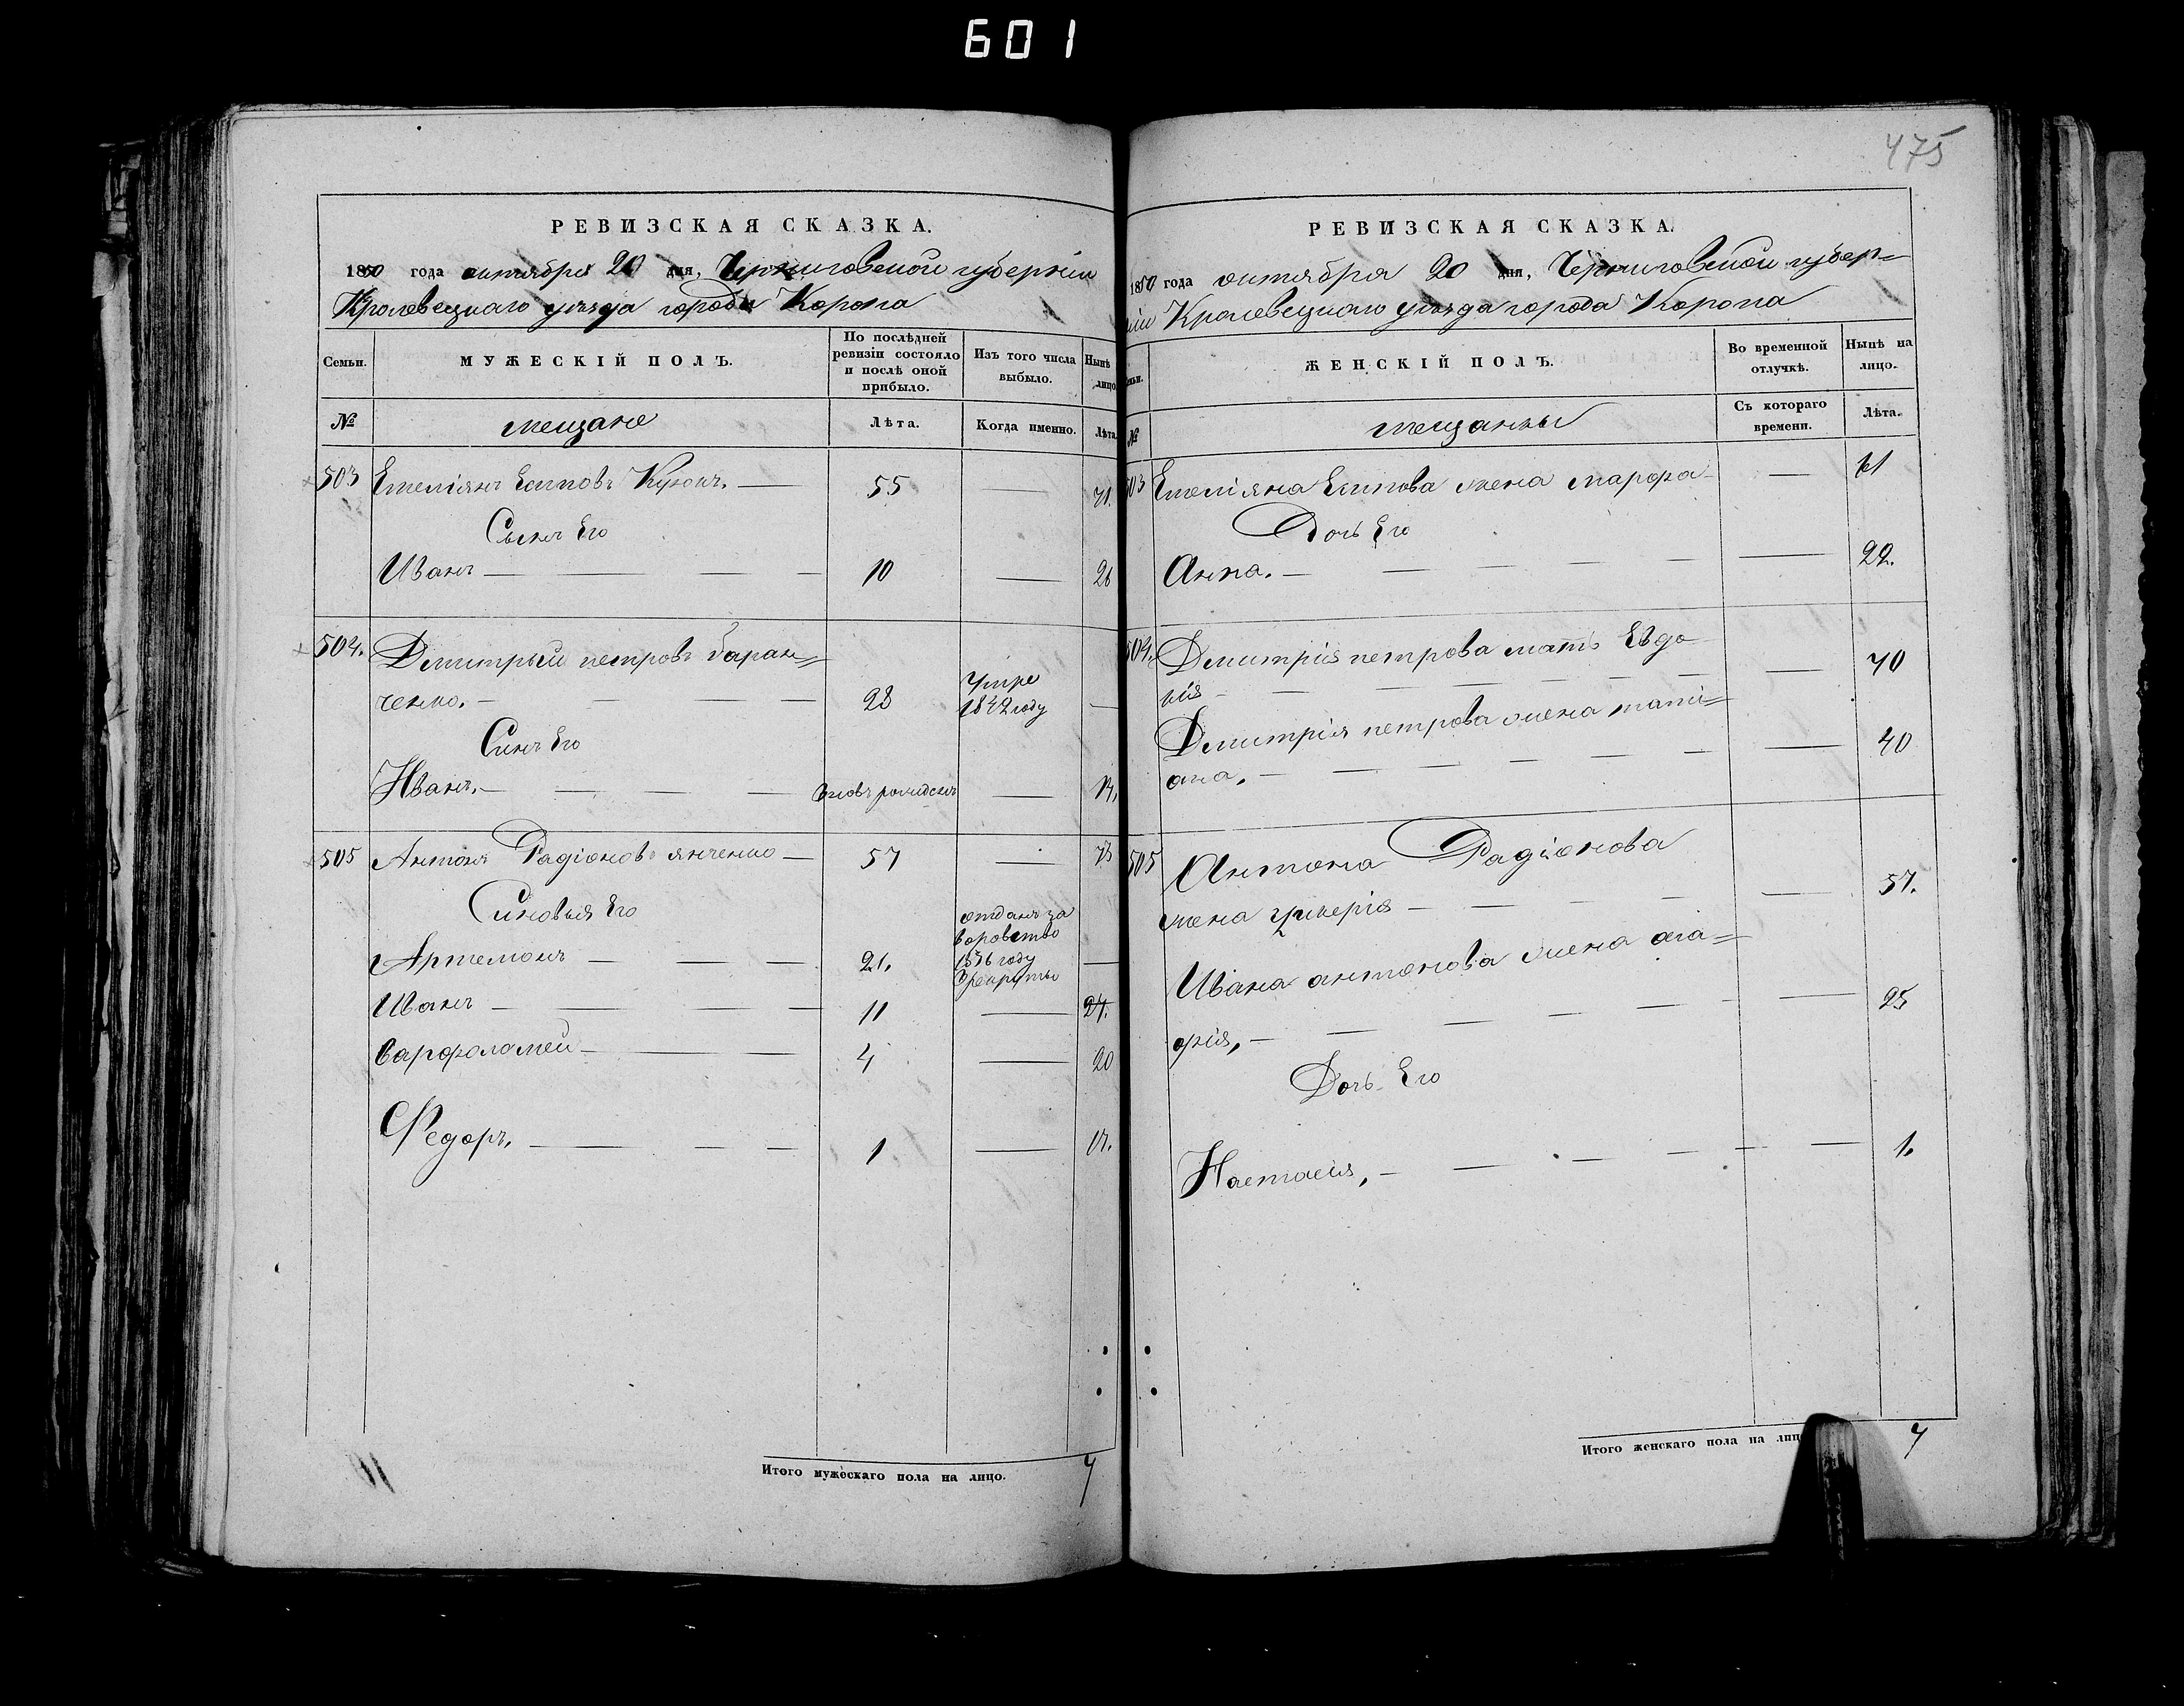 601
475
РЕВИЗСКАЯ СКАЗКА.
1850 года октября 20 дня, Черниговской губерніи
Кролевецкаго уѣзда города Коропа
Семьи.
МУЖЕСКІЙ ПОЛЪ.
По послѣдней ревизіи состояло и послѣ оной прибыло.
Изъ того числа выбыло.
Нынѣ лицо
№
мещане
Лѣта.
Когда именно.
Лѣта
503 Емеліянъ Есиповъ — 55 — 71.
Сынъ Его
Иванъ — 10 — 26
504. Дмитрый петровъ баран=
ченко. — 28 Умре 1842 году —
Синъ Его
Иванъ. — Вновь рожденъ — 14.
505 Антонъ Радіоновъ янченко — 57 — 73
Синовья Его
Артемонъ — 21. отданъ за воровство 1836 году в рекруты —
Иванъ — 11 — 27.
варфоломей — 4 — 20
Федоръ, — 1 — 17.
Итого мужескаго пола на лицо. 7
РЕВИЗСКАЯ СКАЗКА.
1850 года октября 20 дня, Черниговской губер=
ніи Кролевецкаго уѣзда города Коропа
ЖЕНСКІЙ ПОЛЪ.
Во временной отлучкѣ.
Нынѣ на лицо.
№
мещанки
Съ котораго времени.
Лѣта.
503 Емеліяна Есипова жена марфа — 61
Дочь Его
Анна. — 22.
504. Дмитрія петрова мать Евдо
кія — 70
Дмитрія петрова жена тати=
ана. — 40
505 Антона Радіонова
жена гликерія — 57.
Ивана антонова жена ага=
фия, — 25
Дочь Его
Настасия, — 1.
Итого женскаго пола на лиц 7